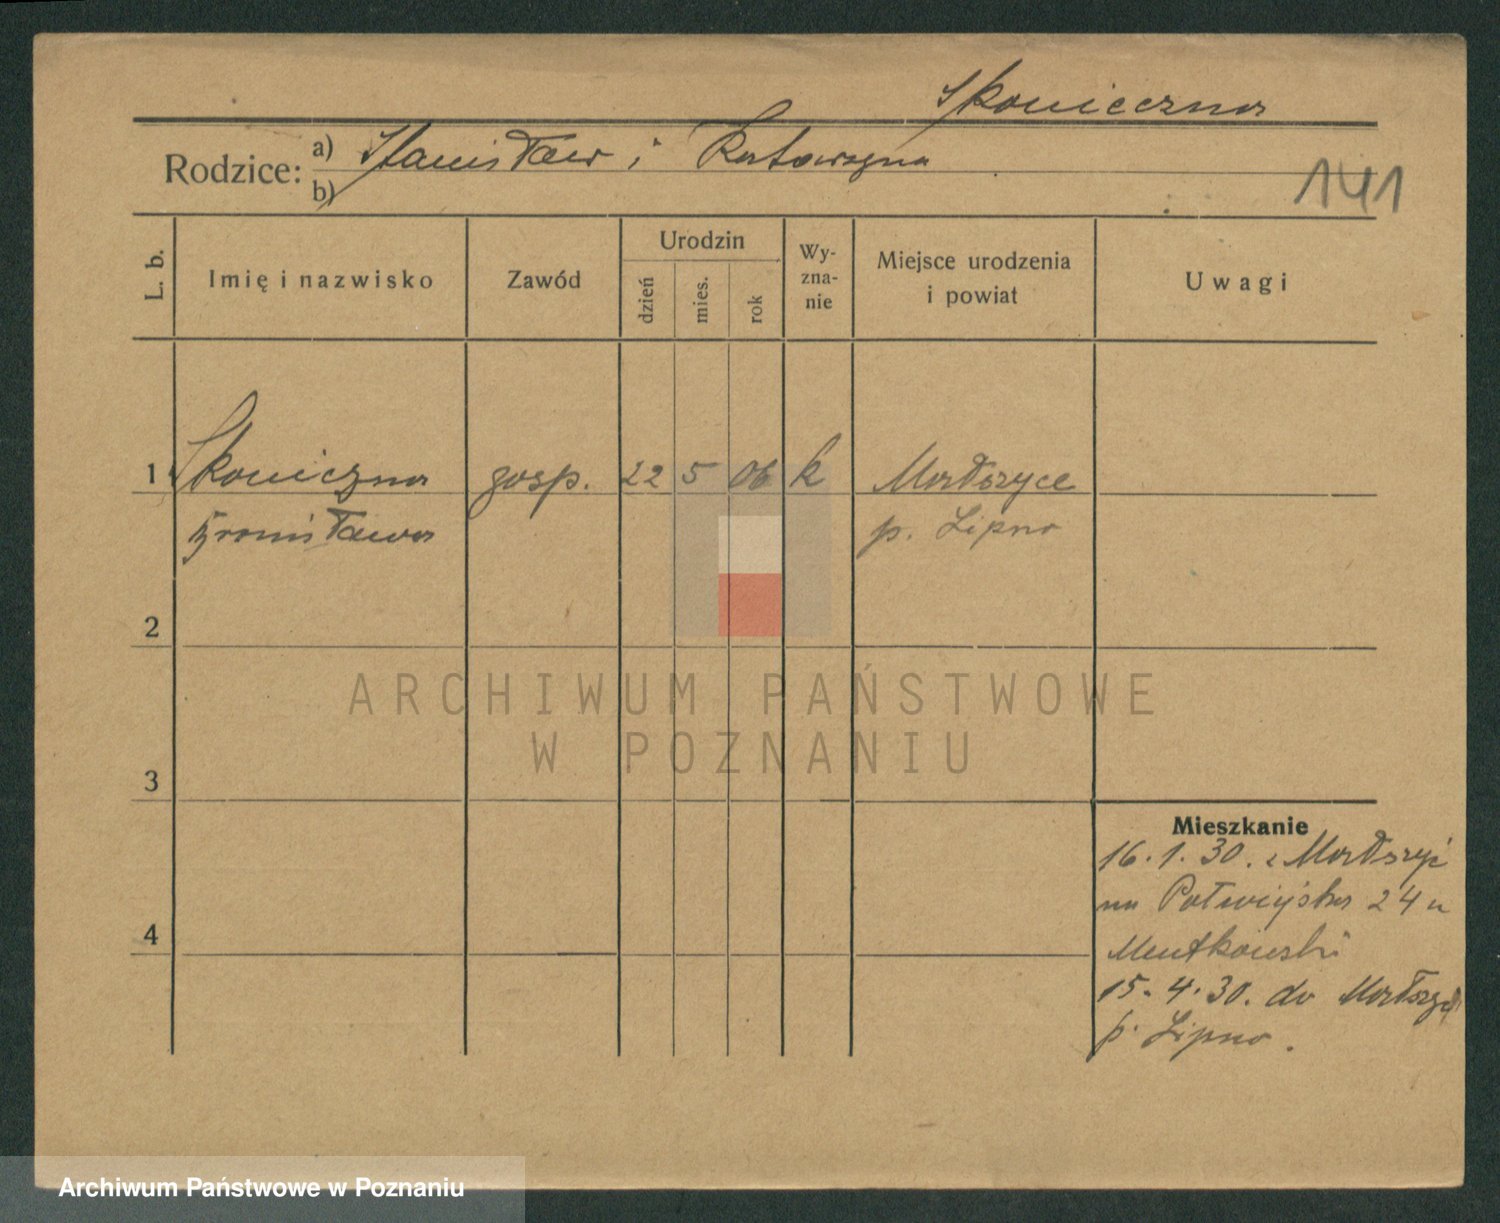 Skonieczna
Rodzice: a) Stanisław i Katarzyna
b)
141
L. b.
Imię i nazwisko
Zawód
Urodzin
dzień
mies.
rok
Wy-
zna-
nie
Miejsce urodzenia
i powiat
Uwagi
1 Skoniczna gosp. 22 5 06 k Modszyce
Bronisława p. Lipno
2
ARCHIWUM PAŃSTWOWE
W POZNANIU
3
Mieszkanie
16. 1. 30. z
na 24 u
4
Mentkowski
15. 4. 30. do
p. Lipno.
Archiwum Państwowe w Poznaniu